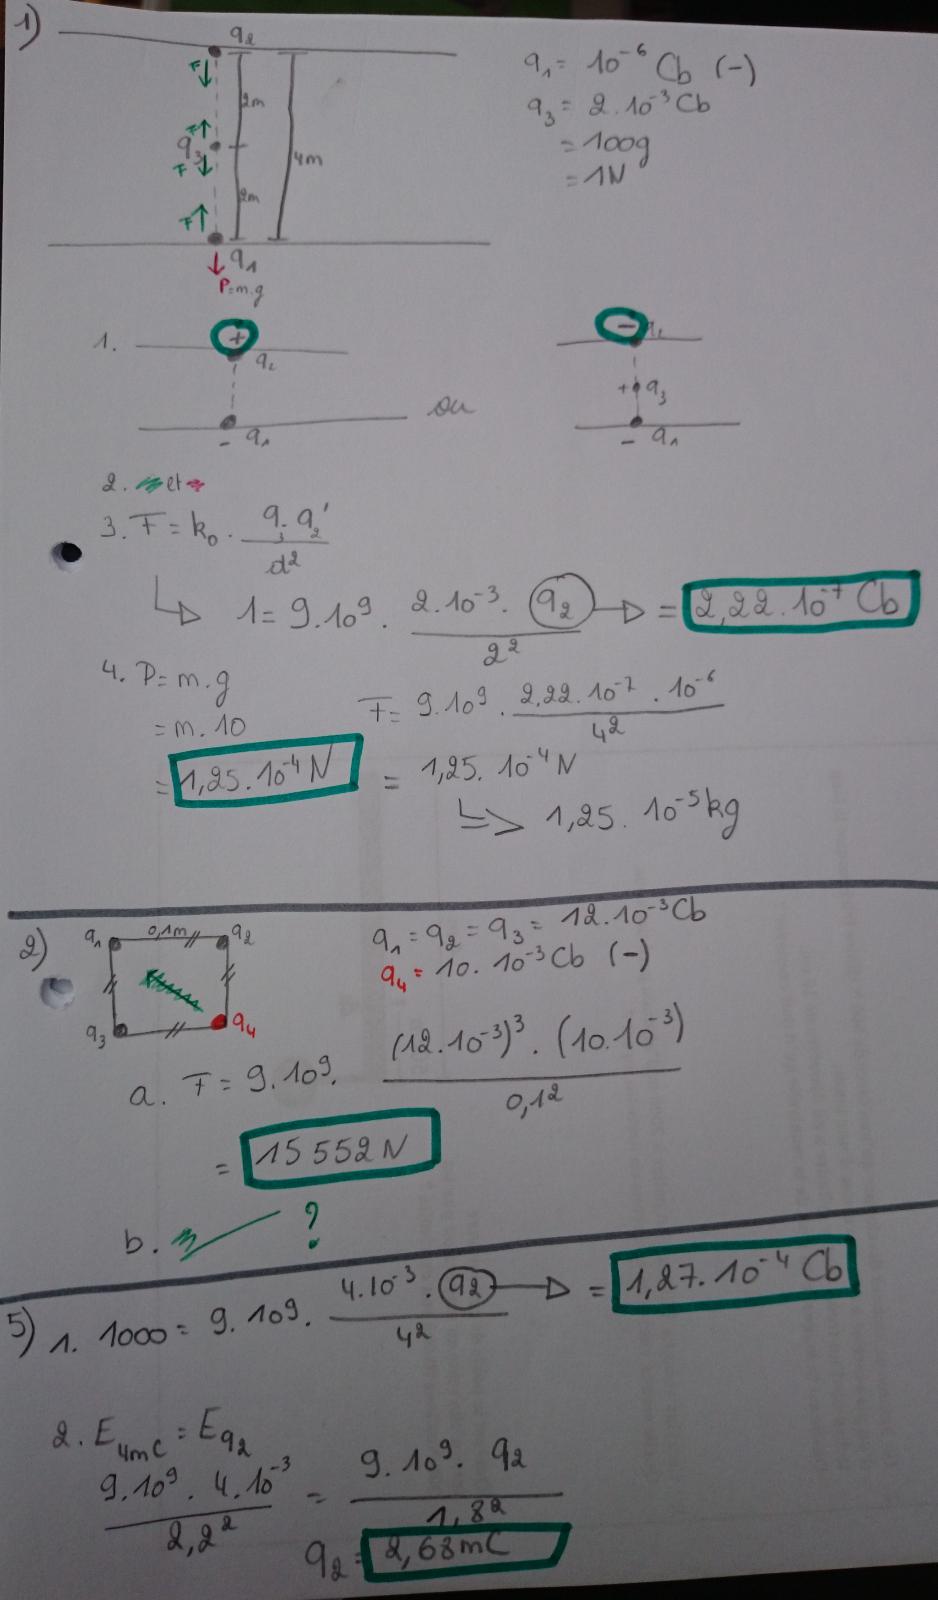 1)
q2
F
2m
F
q3
4m
F
2m
F
q1
P=m.g
q1= 10^-6 Cb (-)
q3= 2.10^-3 Cb
= 100g
= 1N
1.
+
q2
- q1
ou
-
+ q3
- q1
2. et
3. F = k0 . q3.q2' / d²
1 = 9.10^9 . 2.10^-3 . q2 / 2² → = 2,22.10^-7 Cb
4. P= m.g
= m.10
= 1,25.10^-4 N
F= 9.10^9 . 2,22.10^-7 . 10^-6 / 4²
= 1,25.10^-4 N
=> 1,25.10^-5 kg
2)
q1 0,1m q2
q3 q4
q1 = q2 = q3 = 12.10^-3 Cb
q4 = 10.10^-3 Cb (-)
a. F = 9.10^9. (12.10^-3)^3 . (10.10^-3) / 0,1²
= 15 552 N
b. ?
5) 1. 1000 = 9.10^9. 4.10^-3 . q2 / 4² → = 1,27.10^-4 Cb
2. E4mC = Eq2
9.10^9 . 4.10^-3 / 2,2² = 9.10^9 . q2 / 1,8²
q2 = 2,68mC